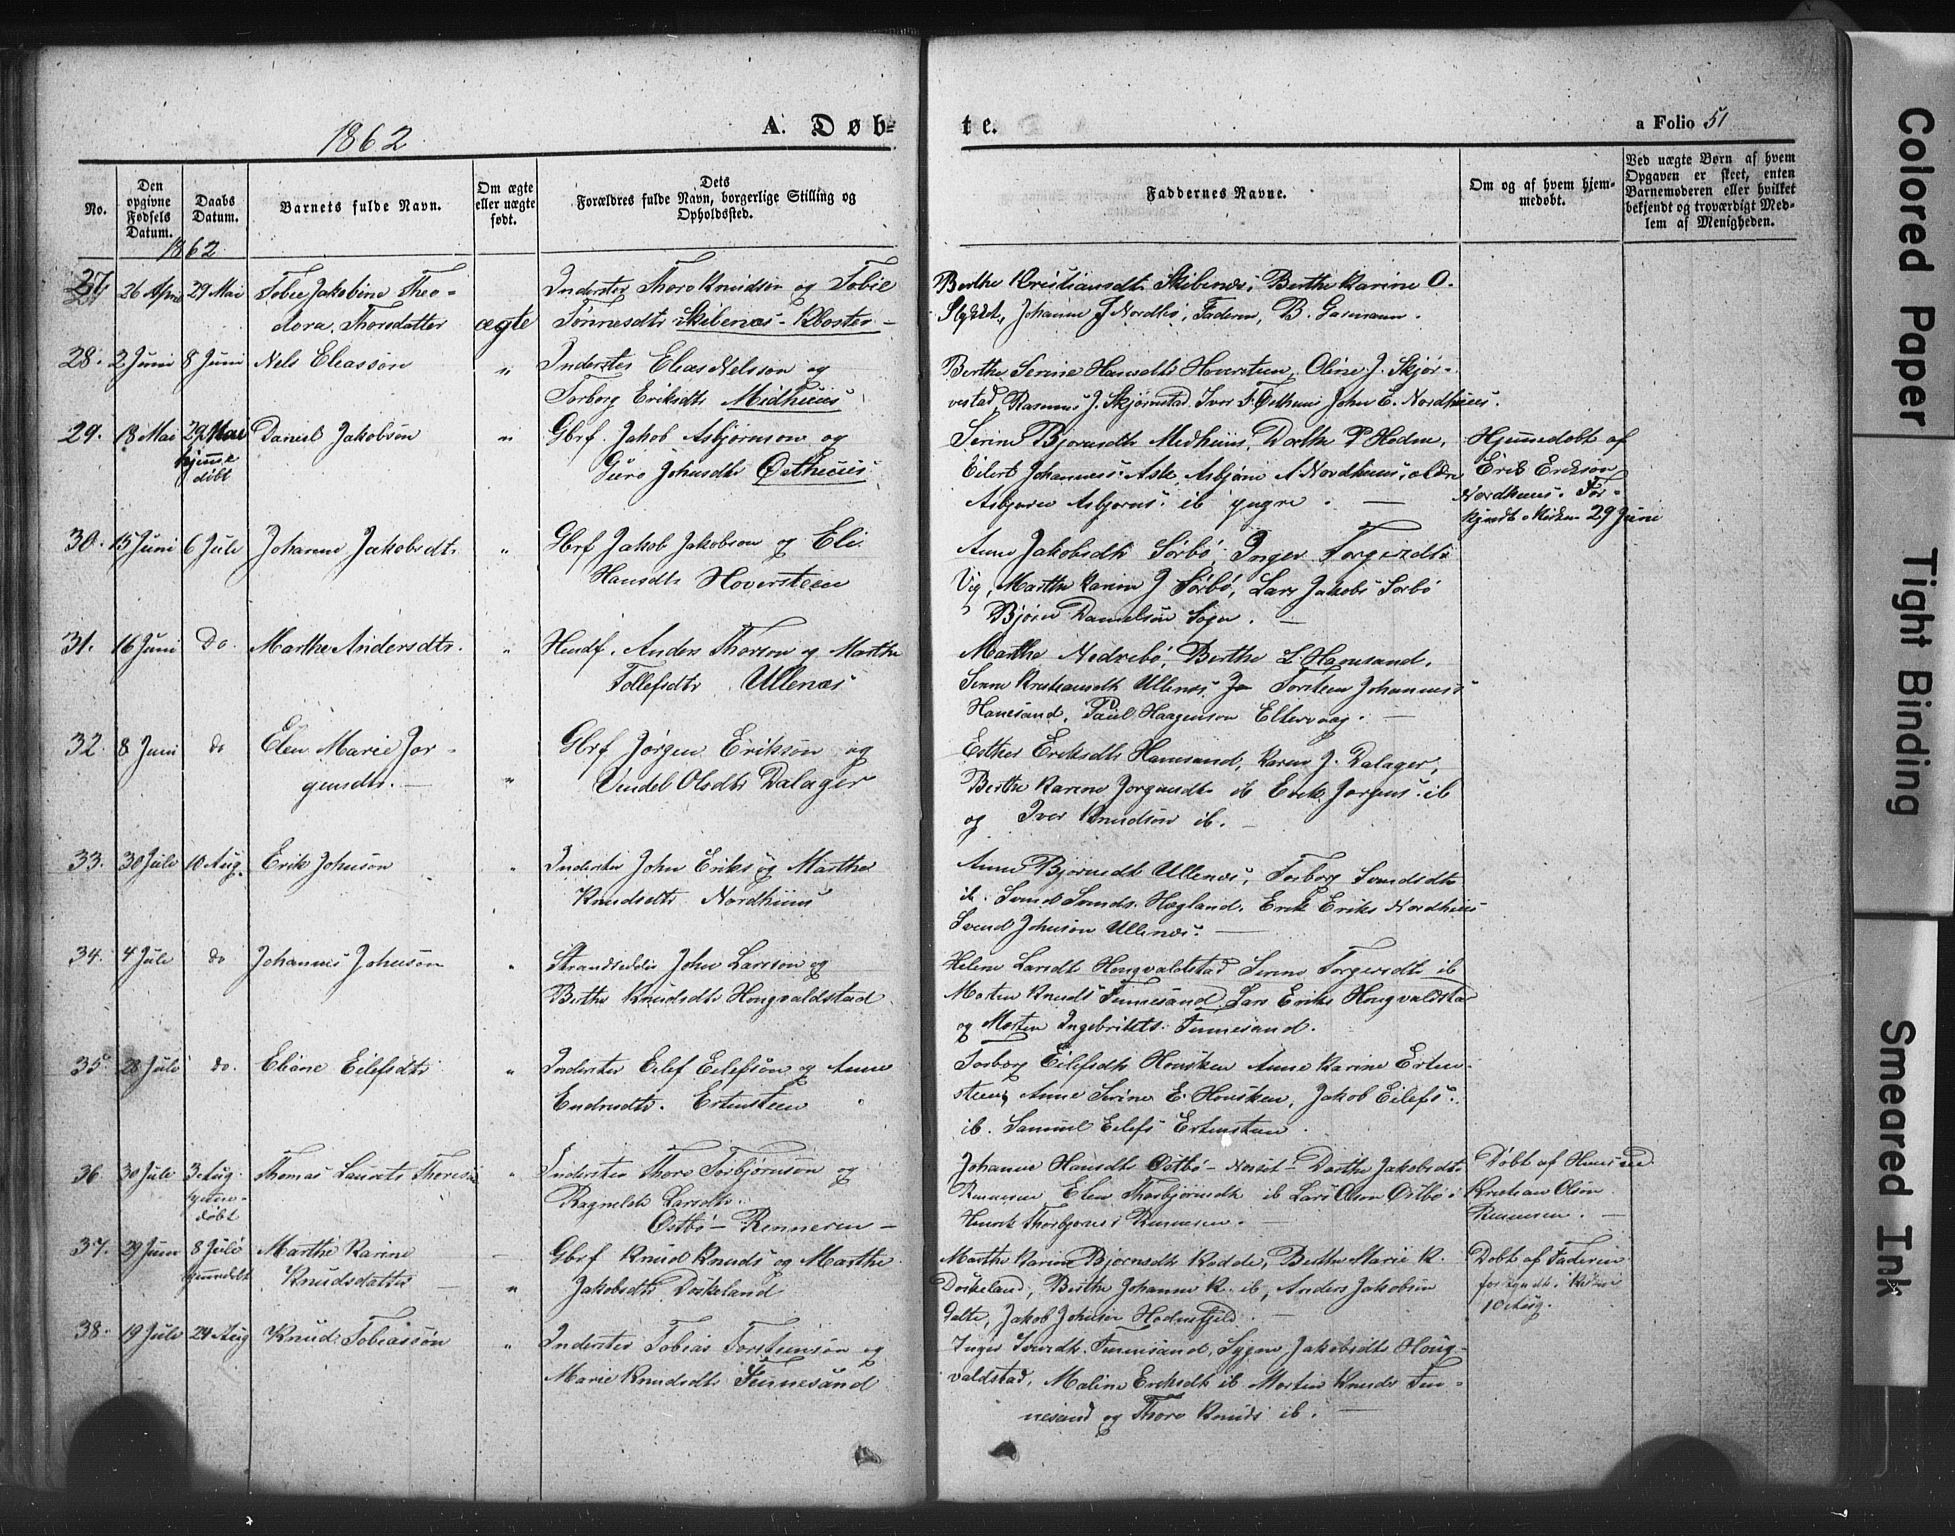 1862
A. Døb-
te.
a Folio 51
No.
Den opgivne Fødsels Datum.
Daabs Datum.
Barnets fulde Navn.
Om ægte eller uægte født.
Dets Forældres fulde Navn, borgerlige Stilling og Opholdssted.
Faddernes Navne.
Om og af hvem hjemmedøbt.
Ved uægte Børn af hvem Opgaven er skeet, enten Barnemoderen eller hvilket bekjendt og troværdigt Medlem af Menigheden.
1862
27. 26 April 29 Mai Tobie Jakobine Theo-
dora Thorsdatter ægte
Inderster Thore Knudsen og Tobie
Tønnesdtr Skibenæs - Kloster -
Berthe Kristiansdtr Skibenæs, Berthe Karine O.
Johanne J Nordbø, Faderen, B. Garmann.
28. 2 Juni 8 Juni Nels Eliassøn "
Inderster Elias Nelsson og
Torborg Eriksdtr Midhuus
Berthe Serine Hansdtr Houersteen, Oline J. Skjør-
vestad, Rasmus J. Skjørvestad Iver T. Østhuus John E. Nordhuus.
29. 18 Mai 29 Mai
hjemme
døbt
Daniel Jakobsøn "
Gbrf. Jakob Asbjørnson og
Guro Johnsdtr Østhuus
Serine Bjørnsdtr Medhuus, Dorthe P Heden,
Eilert Johanness: Aske, Asbjørn A Nordhuus, ældre
Asbjørn Asbjørns: ib yngre. -
Hjemmedøbt af
Erik Erikson
Nordhuus. For-
kyndt i Kirken 29 Juni
30. 15 Juni 6 Juli Johanne Jakobsdtr "
Gbrf Jakob Jakobson og Eli
Hansdtr Hoversteen
Anne Jakobsdtr Sørbø, Inger Torgersdtr
Vig, Marthe Karine J Sørbø, Lars Jakobs Sørbø
Bjørn Danielsøn Sogn. -
31. 16 Juni Do. Marthe Andersdtr. "
Huusf. Anders Thorson og Marthe
Tollefsdtr Ullenæs
Marthe Nedrebø, Berthe L Hanesand,
Serine Kristiansdtr Ullenæs, Torsteen Johanness
Hanesand, Paul Haagenson Eltervaag. -
32. 8 Juni do Elen Marie Jør-
gensdtr. - "
Gbrf Jørgen Erikson og
Vendel Olsdtr Dalager
Esther Eriksdtr Hanesand, Karen J. Dalager,
Berthe Karine Jørgensdtr ib Erik Jørgens: ib
og Iver Knudsøn ib. -
33. 30 Juli 10 Aug. Erik Johnson "
Inderster John Eriks og Marthe
Knudsdtr Nordhuus
Anne Bjørnsdtr Ullenæs, Torborg Svendsdtr
ib. Svend Svends. Hægland, Erik Eriks Nordhuus
Svend Johnson Ullenæs. -
34. 4 Juli do Johannes Johnsøn "
Strandsidder John Larsson og
Berthe Knudsdtr Hougvaldstad
Helene Larsdtr Hougvaldstad Serine Torgersdtr ib
Morten Knuds Finnesand, Lars Eriks Hougvaldstad
og Morten Ingebrikts. Finnesand.
35 28 Juli do. Eliane Eilefsdtr "
Inderster Eilef Eilefsøn og Anne
Endresdtr. Ertensteen
Torborg Eilefsdtr Housken Anne Karine Erten-
steen, Anne Serine E. Housken, Jakob Eilefs:
ib. Samuel Eilefs Ertensteen.
36. 30 Juli 3 Aug.
døbt
Thomas Laurits Thoresøn "
Inderster Thore Torbjørnsøn og
Ragnilde Larsdtr.
Østbø - Renneren -
Johanne Hansdtr Østbø - Dorthe Jakobsdtr
Rennesøen Elen Thorbjørnsdtr ib Lars Olson Østbø
Henrik Thorbjørns: Rennesøen. -
Døbt af
Kristian Olsøn
Rennesøen. -
37. 29 Juni 8 Juli
Marthe Karine
Knudsdatter - "
Gbrf Knud Knuds og Marthe
Jakobsdtr Dørkeland
Marthe Karine Bjørnsdtr Radde, Berthe Marie K.
Dørkeland, Berthe Johanne K. ib, Anders Jakobsøn
Galte, Jakob Johnson Hodnefjeld. -
Døbt af Faderen
forkyndt i Kirken
10 Aug.
38. 19 Juli 24 Aug Knud Tobiassøn "
Inderster Tobias Torsteensøn og
Marie Knudsdtr Finnesand
Inger Finnesand, Jakobsdtr Houg-
valdstad, Maline Eriksdtr ib Morten Knuds Fin-
nesand og Thore Knuds ib. -
Colored Paper
Tight Binding
Smeared Ink